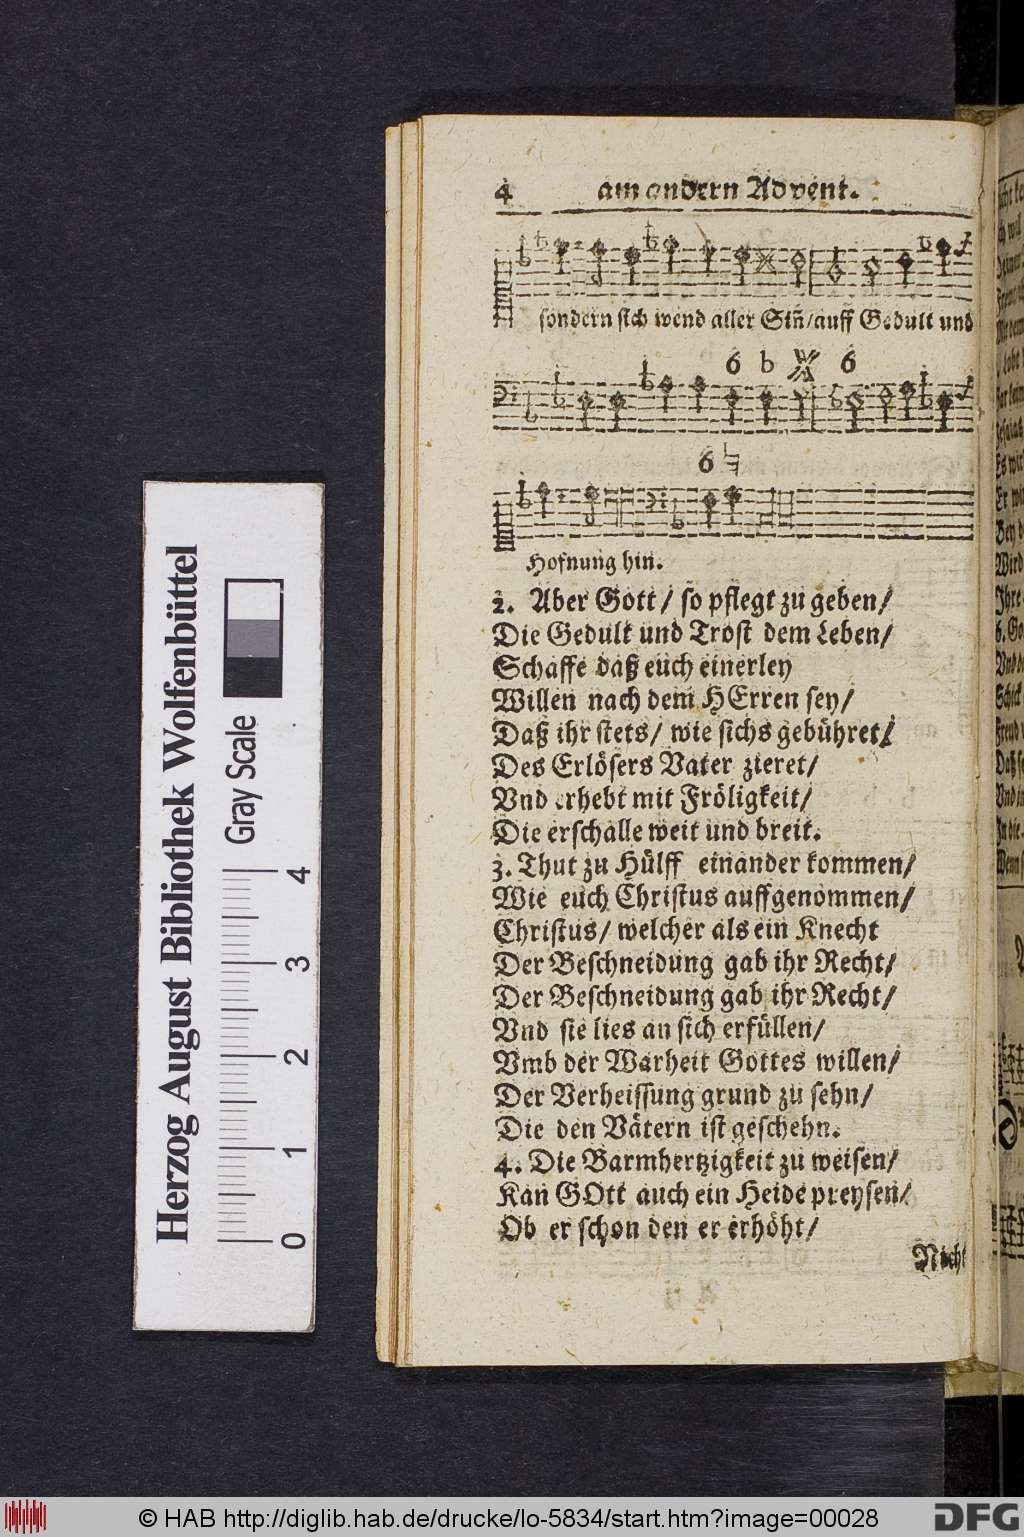 4 am andern Advent.
sondern sich wend aller Sin̄/auff Gedult und
6 b 6
6
Hofnung hin.
2. Aber Gott/ so pflegt zu geben/
Die Gedult und Trost dem Leben/
Schaffe daß euch einerley
Willen nach dem HErren sey/
Daß ihr stets/ wie sichs gebühret/
Des Erlösers Vater zieret/
Vnd erhebt mit Fröligkeit/
Die erschalle weit und breit.
3. Thut zu Hülff einander kommen/
Wie euch Christus auffgenommen/
Christus/ welcher als ein Knecht
Der Beschneidung gab ihr Recht/
Der Beschneidung gab ihr Recht/
Vnd sie lies an sich erfüllen/
Vmb der Warheit Gottes willen/
Der Verheissung grund zu sehn/
Die den Vätern ist geschehn.
4. Die Barmhertzigkeit zu weisen/
Kan GOtt auch ein Heide preysen/
Ob er schon den er erhöht/
Nicht
Herzog August Bibliothek Wolfenbüttel
Gray Scale
0 1 2 3 4
© HAB http://diglib.hab.de/drucke/lo-5834/start.htm?image=00028
DFG